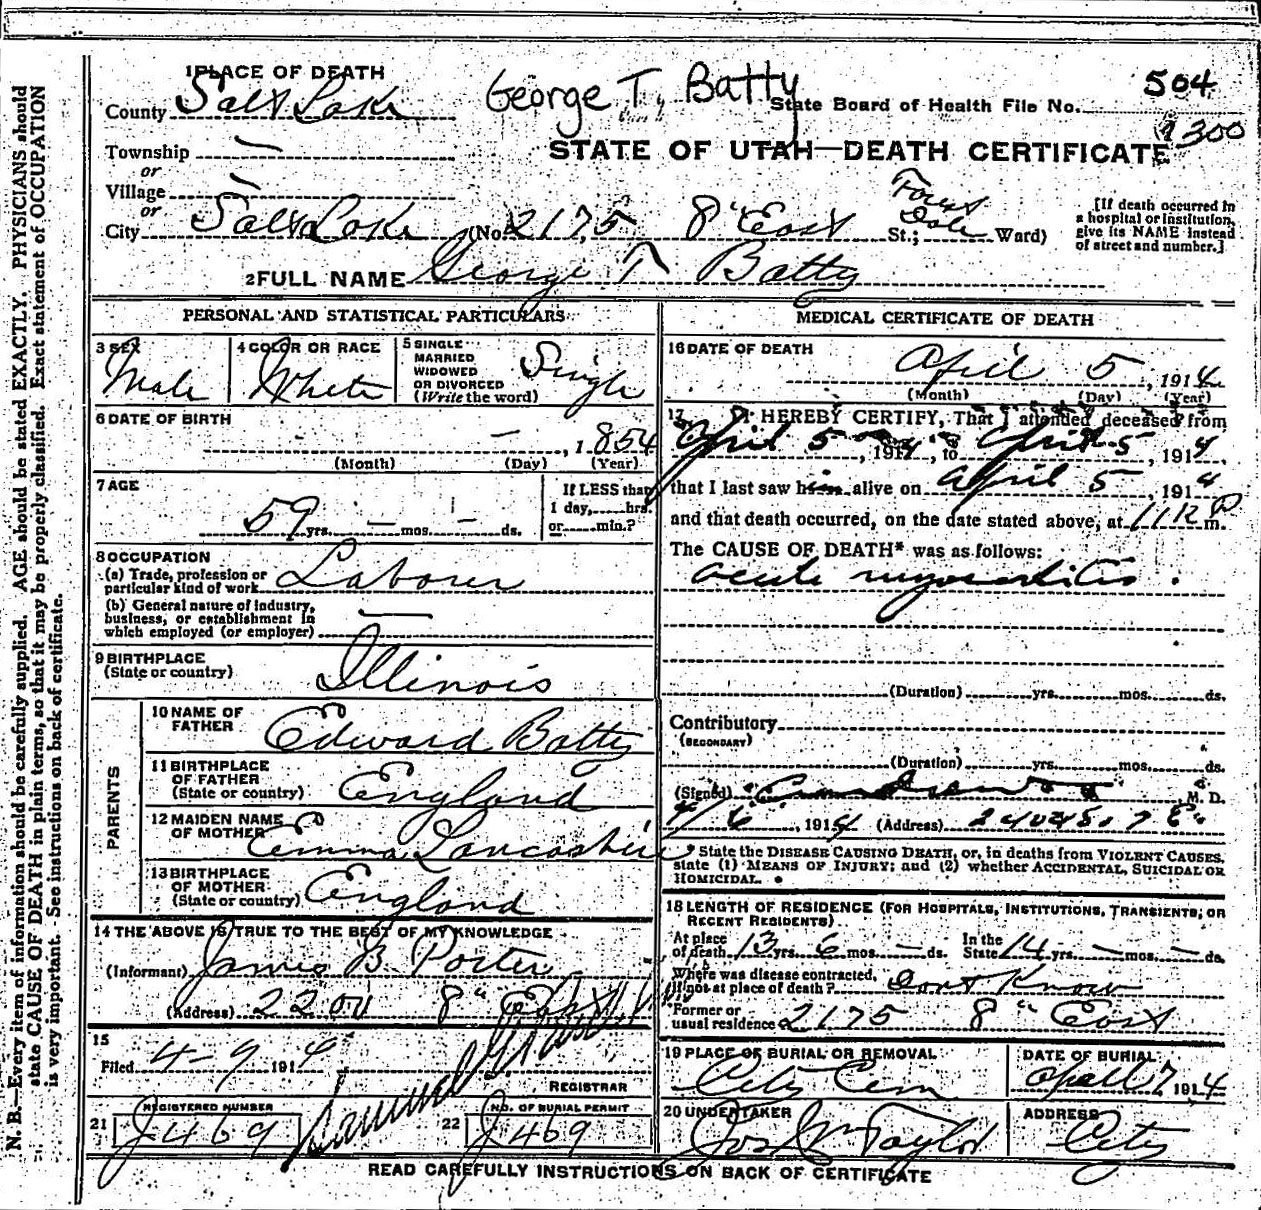 1 PLACE OF DEATH
County Salt Lake
George T. Batty
State Board of Health File No. 504
300
Township —
or
Village —
or
City Salt Lake (No. 2175 8" East St.; Ward)
STATE OF UTAH—DEATH CERTIFICATE
[If death occurred in
a hospital or institution,
give its NAME instead
of street and number.]
2 FULL NAME George T Batty
PERSONAL AND STATISTICAL PARTICULARS
3 SEX
Male
4 COLOR OR RACE
White
5 SINGLE
MARRIED
WIDOWED
OR DIVORCED
(Write the word)
Single
6 DATE OF BIRTH
— , 1854
(Month) (Day) (Year)
7 AGE
59 yrs. — mos. — ds.
If LESS than
1 day, hrs.
or min.?
8 OCCUPATION
(a) Trade, profession or
particular kind of work Laborer
(b) General nature of industry,
business, or establishment in
which employed (or employer) —
9 BIRTHPLACE
(State or country) Illinois
PARENTS
10 NAME OF
FATHER Edward Batty
11 BIRTHPLACE
OF FATHER
(State or country) England
12 MAIDEN NAME
OF MOTHER Emma Lancashire
13 BIRTHPLACE
OF MOTHER
(State or country) England
14 THE ABOVE IS TRUE TO THE BEST OF MY KNOWLEDGE
(Informant) James B. Porter
(Address) 2201 8" East
15
Filed 4-9 1914
Samuel G. Paul
REGISTRAR
21 REGISTERED NUMBER
J469
22 NO. OF BURIAL PERMIT
J469
MEDICAL CERTIFICATE OF DEATH
16 DATE OF DEATH
April 5, 1914
(Month) (Day) (Year)
17 I HEREBY CERTIFY, That I attended deceased from
April 5, 1914, to April 5, 1914,
that I last saw him alive on April 5, 1914
and that death occurred, on the date stated above, at 1112 P m.
The CAUSE OF DEATH* was as follows:
acute myocarditis.
(Duration) yrs. mos. ds.
Contributory
(SECONDARY)
(Duration) yrs. mos. ds.
(Signed) M. D.
4/6, 1914 (Address)
* State the DISEASE CAUSING DEATH, or, in deaths from VIOLENT CAUSES,
state (1) MEANS OF INJURY; and (2) whether ACCIDENTAL, SUICIDAL OR
HOMICIDAL.
18 LENGTH OF RESIDENCE (FOR HOSPITALS, INSTITUTIONS, TRANSIENTS, OR
RECENT RESIDENTS).
At place
of death 13 yrs. 6 mos. — ds. In the
State 14 yrs. — mos. — ds.
Where was disease contracted,
if not at place of death? Dont Know
Former or
usual residence 2175 8" East
19 PLACE OF BURIAL OR REMOVAL
City Cem
DATE OF BURIAL
April 7, 1914
20 UNDERTAKER
Jos Wm Taylor
ADDRESS
City
READ CAREFULLY INSTRUCTIONS ON BACK OF CERTIFICATE
N. B.—Every item of information should be carefully supplied. AGE should be stated EXACTLY. PHYSICIANS should
state CAUSE OF DEATH in plain terms, so that it may be properly classified. Exact statement of OCCUPATION
is very important. See instructions on back of certificate.